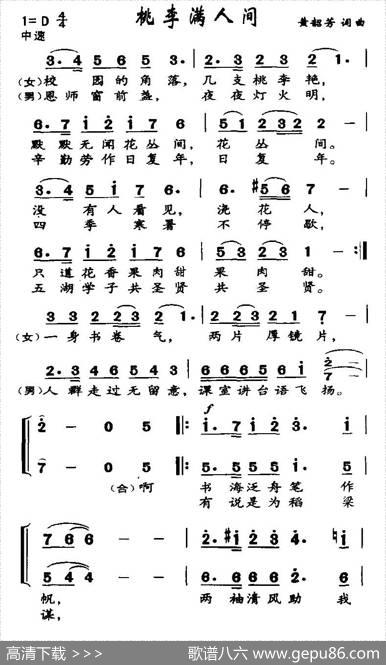 1=D 4/4 桃李满人间 黄韶芳 词曲
中速
3·4 5 6 5 3· 2 2 3 2 3 2 1·
(女)校 园的角落, 几支桃李艳,
(男)恩师窗前盏, 夜夜灯火明,
6·7 i 2 i 7 6 5 1 2 3 2 2 —
默默无闻花丛间, 花丛间。
辛勤劳作日复年, 日复年。
3·4 5 i 7 5 3· 6· #5 6 7 —
没有人看见, 浇花人,
四季寒暑 不停歇,
6·7 i 2 i 7 6 5 3 2 3 1 — :‖
只道花香果肉甜 果肉甜。
五湖学子共圣贤 共圣贤。
3 3 2 2 3 1 2 2 3 2 1 7 —
(女)一身书卷气, 两片厚镜片,
2·3 4 6 5 4 3
(男)人群走过无留意, 课室讲台语飞扬。
f
2 — 0 5 ‖: i·7 i 2 3· i
7 — 0 5 5·5 5 5 i· 5
(合)啊 书海泛舟笔作
有说是为稻粱
7 6 6 — — 2·#i i 2 3 2· i
5 4 4 — —
帆, 两袖清风助我
谋,
高清下载 >>> 歌谱八六 www.gepu86.com